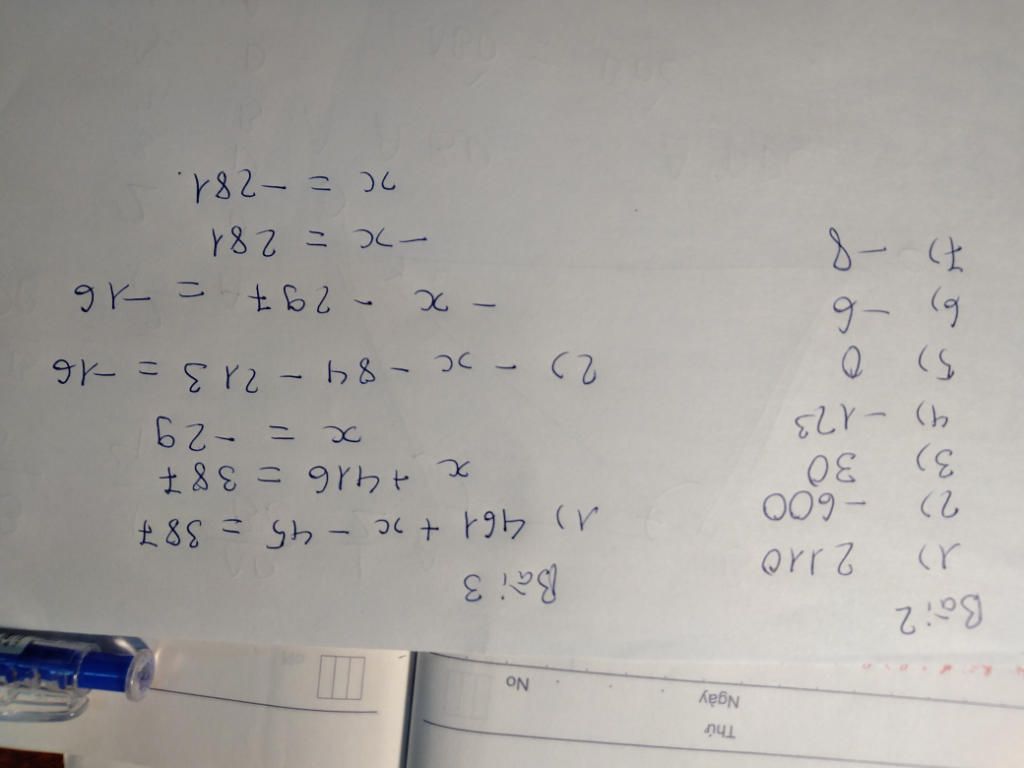 Thứ
Ngày
No
Bài 2
1) 2110
2) -600
3) 30
4) -123
5) 0
6) -6
7) -8
Bài 3
1) 461 + x - 45 = 387
x + 416 = 387
x = -29
2) - x - 84 - 213 = -16
- x - 297 = -16
-x = 281
x = -281.